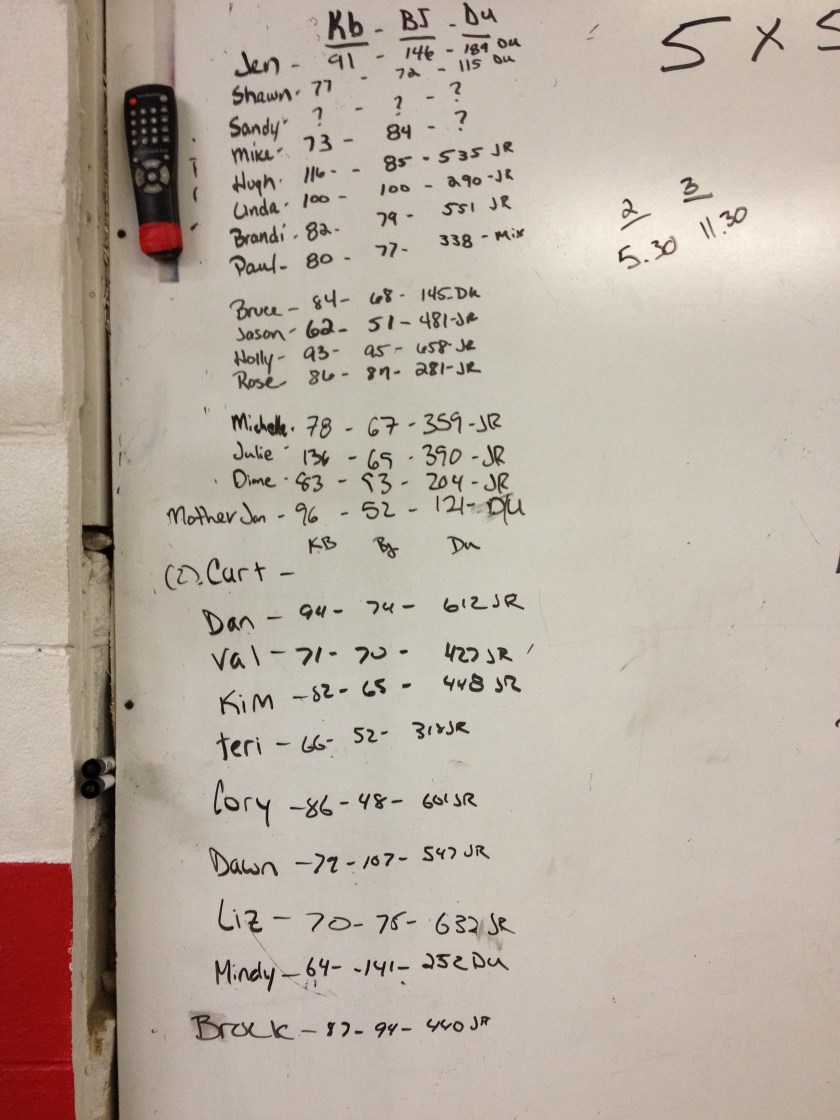 Kb - BJ - Du
Jen - 91 - 146 - 189 Du
Shawn - 77 - 72 - 115 Du
Sandy - ? - ? - ?
Mike - 73 - 84 - ?
Hugh - 116 - 85 - 535 JR
Linda - 100 - 100 - 290 - JR
Brandi - 82 - 79 - 551 JR
Paul - 80 - 77 - 338 - Mix
Bruce - 84 - 68 - 145 - Du
Jason - 62 - 51 - 481 - JR
Holly - 93 - 95 - 658 - JR
Rose - 86 - 87 - 281 - JR
Michelle - 78 - 67 - 359 - JR
Julie - 136 - 69 - 390 - JR
- 83 - 93 - 204 - JR
Mother Jan - 96 - 52 - 121 - D/U
KB BJ Du
(2). Curt -
Dan - 94 - 74 - 612 JR
Val - 71 - 70 - 427 JR
Kim - 82 - 65 - 448 JR
Teri - 66 - 52 - 318 JR
Cory - 86 - 48 - 601 JR
Dawn - 72 - 107 - 547 JR
Liz - 70 - 75 - 632 JR
Mindy - 64 - 141 - 252 Du
Brock - 87 - 94 - 440 JR
5 x 5
2 3
5.30 11.30